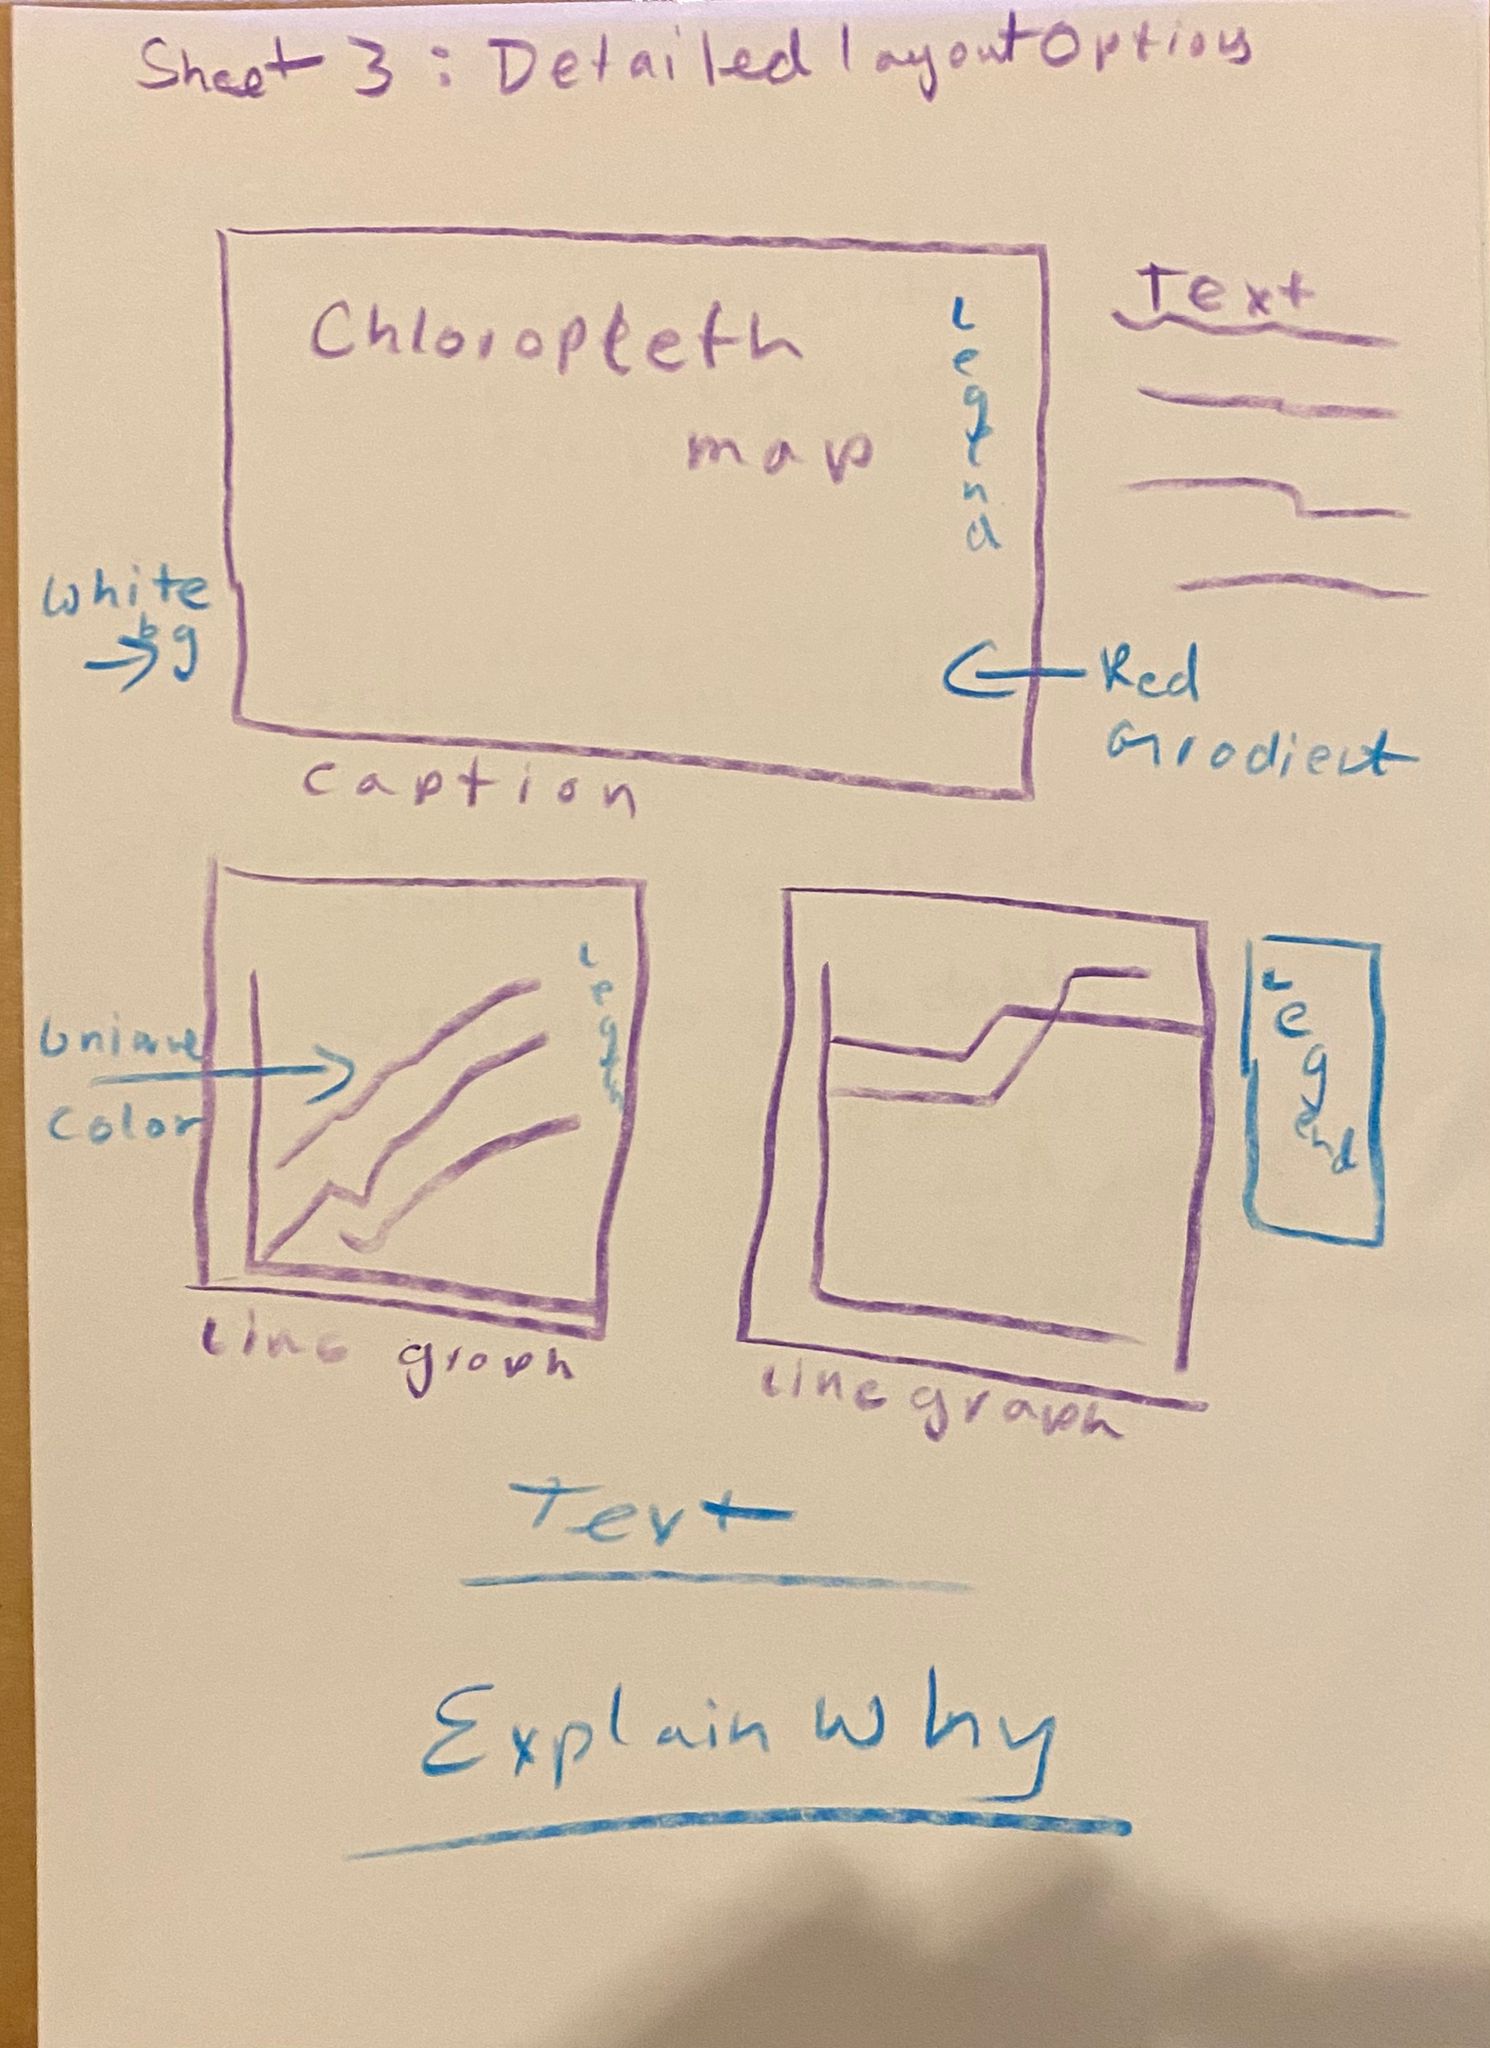 Sheet 3: Detailed layout Options
Chloropleth
map
Legend
Text
White
bg
Red
Gradient
caption
Unique
color
Legend
Legend
Line graph
Line graph
Text
Explain why